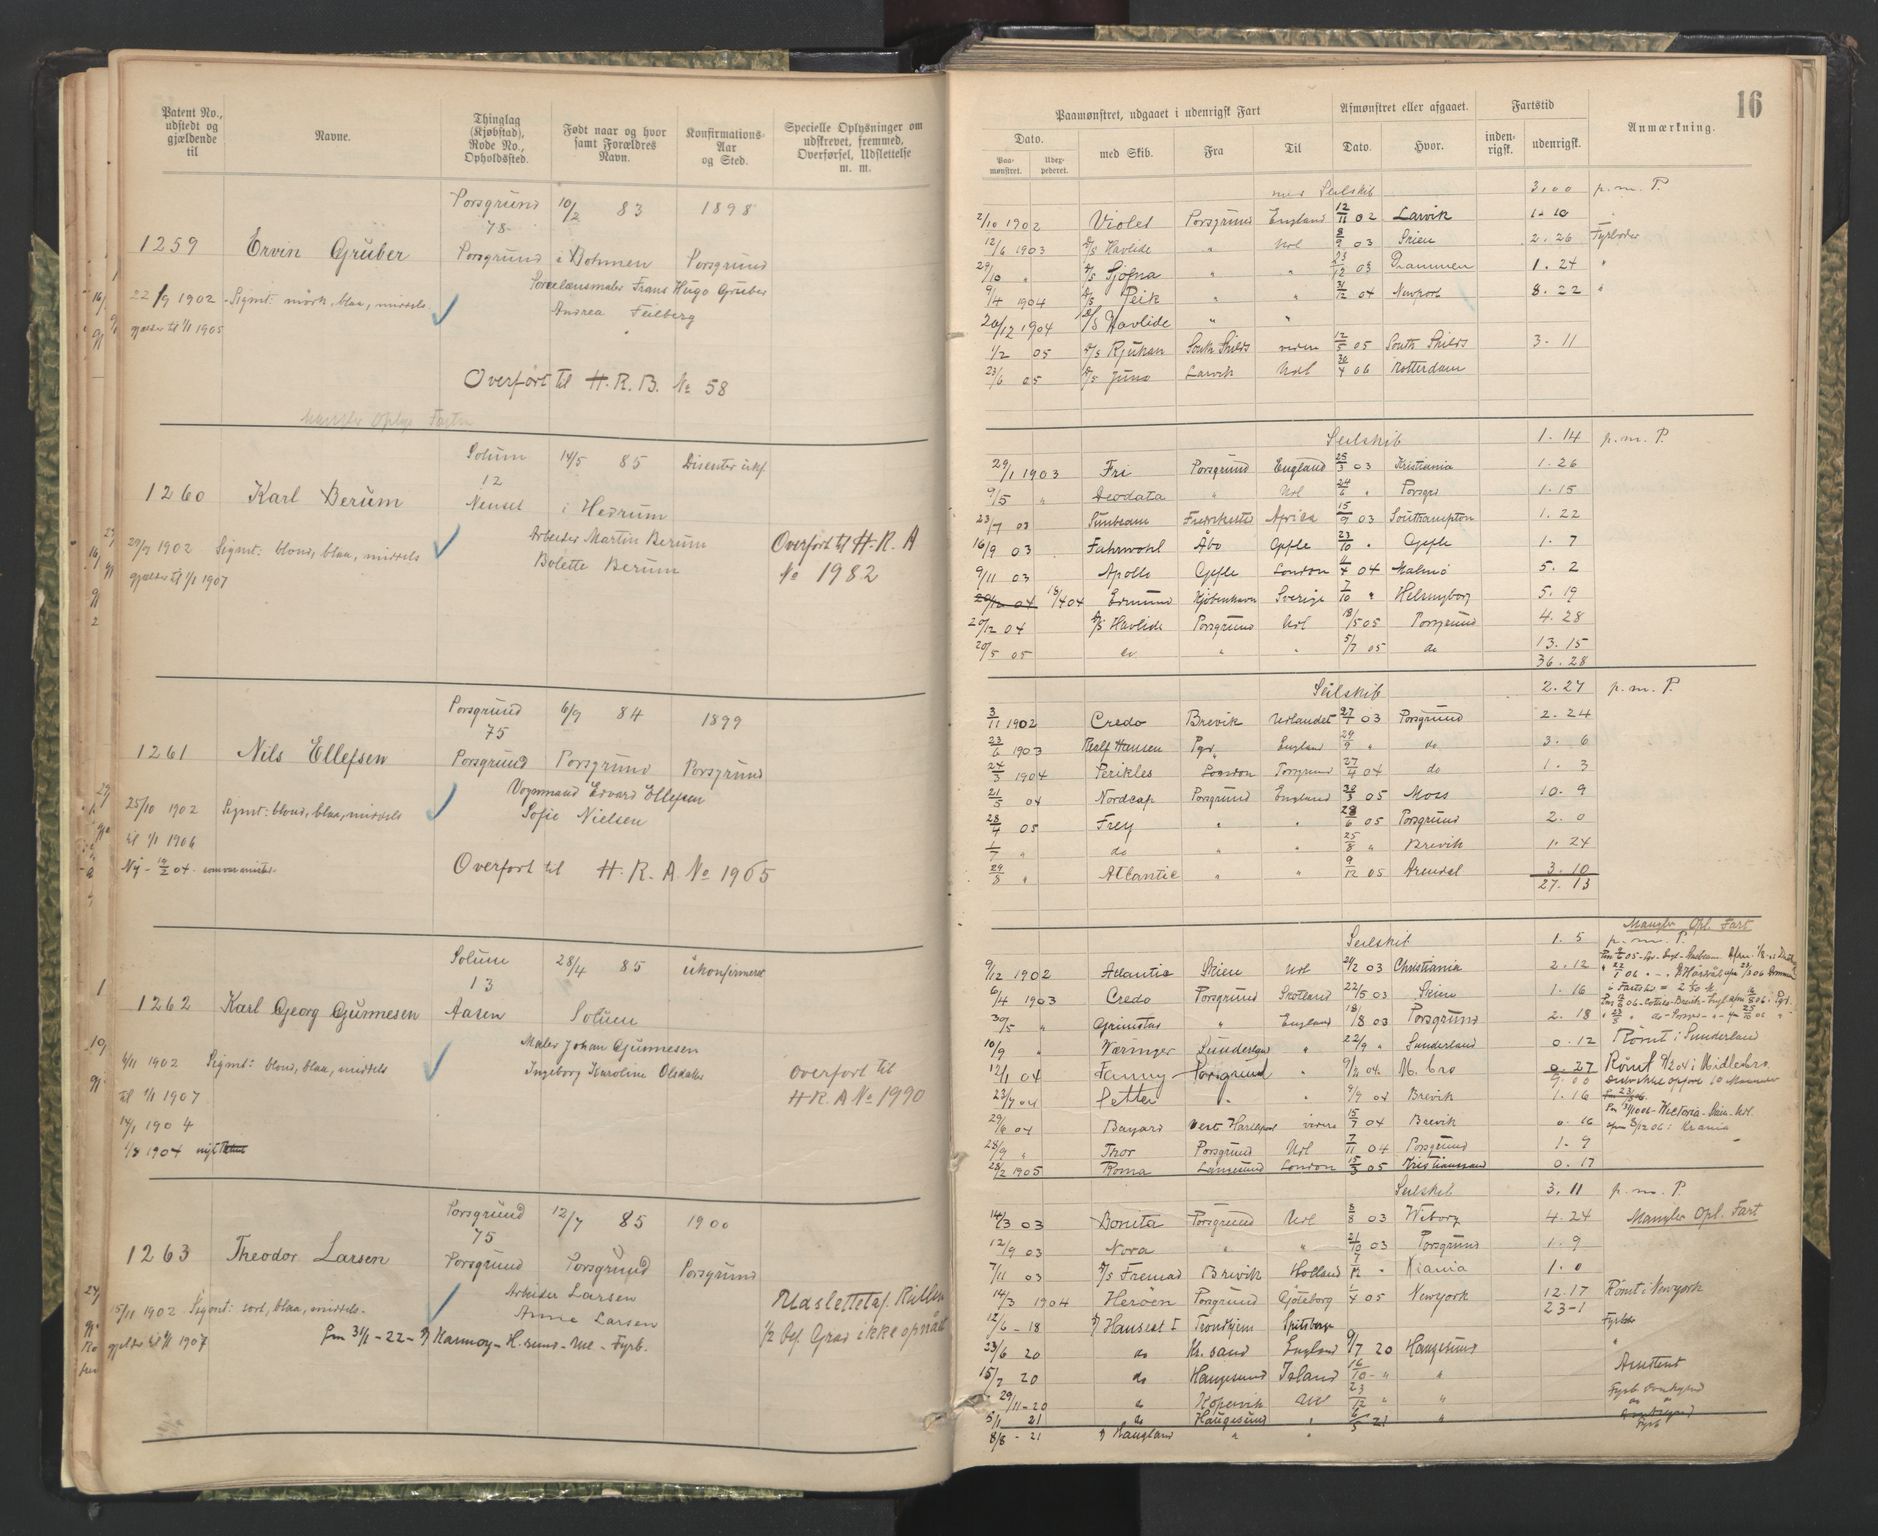 Patent No., udstedt og gjældende til
Navne.
Thinglag (Kjøbstad), Rode No., Opholdssted.
Født naar og hvor samt Forældres Navn.
Konfirmations-Aar og Sted.
Specielle Oplysninger om udskrevet, fremmed, Overførsel, Udslettelse m. m.
Porsgrund 10/2 83 1898
78
1259 Ervin Gruber Porsgrund i Bohmen Porsgrund
Porcelænsmaler Frans Hugo Gruber
22/9 1902 Signt: mörk, blaa, middels.
Andrea Feilberg
gjælder til 1/1 1905
Overført til H. R. B. No 58
Mangler Oplys Farten
Solum 14/5 85 Disenter ukf
12
1260 Karl Berum Nenset i Hedrum
29/9 1902 Signt: blond, blaa, middels
Arbeider Martin Berum
Bolette Berum
gjælder til 1/1 1907
Overført til H. R. A
No 1982
Porsgrund 6/9 84 1899
75
1261 Nils Ellefsen Porsgrund Porsgrund Porsgrund
Vognmand Edvard Ellefsen
25/10 1902 Signt: blond, blaa, middels
Sofie Nielsen
til 1/1 1906
Overført til H. R. A No 1965
Solum 28/4 85 ukonfirmeret
13
1262 Karl Georg Gunnesen Aasen Solum
Maler Johan Gunnesen
4/11 1902 Signt: blond, blaa, middels
Ingeborg Karoline Olsdatter
til 1/1 1907
14/1 1904
1/8 1904 nyt
overfort til
H. R. A No 1990
Porsgrund 12/7 85 1900
75
1263 Theodor Larsen Porsgrund Porsgrund Porsgrund
Arbeider Larsen
15/11 1902 Signt: sort, blaa, middels.
Anna Larsen
gjelder til 1/1 1907
Pm 31/1-22- Karmøy - H.sund - Udl - Fyrb.
Udslettet af Rullen
1/2 bef. Grad ikke opnaet
16
Paamønstret, udgaaet i udenrigsk Fart
Afmønstret eller afgaaet.
Fartstid
Anmærkning.
Dato. med Skib. Fra Til Dato. Hvor. inden-rigsk. udenrigsk.
Paa-mønstret. Udex-pederet.
med Seilskib 3.00 p. m. P.
2/10 1902 Violet Porsgrund England 12/11 02 Larvik 1. 10
12/6 1903 D/S Havlide " Udl 8/9 03 Skien 2. 26 Fyrbøder
29/10 " D/S Sjofna " " 23/12 03 Drammen 1. 24 "
9/4 1904 D/S Peik " " 31/12 04 Newport 8. 22 "
20/12 1904 D/S Havlide " "
1/2 05 D/S Rjukan South Shilds videre 12/5 05 South Shilds 3. 11
23/6 05 D/S Juno Larvik Udl 30/4 06 Rotterdam
Seilskib 1. 14 p. m. P.
29/1 1903 Fri Porsgrund England 25/3 03 Kristiania 1. 26
9/5 " Deodata " Udl 24/6 " Porsgrd 1. 15
23/7 03 Sunbeam Fredrikstad Afrika 15/9 03 Southampton 1. 22
16/9 03 Fahrwohl Åbo Gefle 23/10 " Gefle 1. 7
9/11 03 Apollo Gefle London 11/4 04 Malmö 5. 2
20/12 04 18/4 04 Edmund Kjøbenhavn Sverige 7/10 " Helsingborg 5. 19
20/12 04 D/S Havlide Porsgrund Udl 18/5 05 Porsgrund 4. 28
20/5 05 do " " 5/7 05 do 13. 15
36. 28
Seilskib 2. 27 p. m. P.
3/11 1902 Credo Brevik Udlandet 27/1 03 Porsgrund 2. 24
23/6 1903 Rolf Hansen Pgr. England 29/9 " do 3. 6
24/3 1904 Perikles London Porsgrund 27/4 04 do 1. 3
21/5 04 Nordcap Porsgrund England 30/3 05 Moss 10. 9
28/4 05 Frey " " 28/6 05 Porsgrund 2. 0
1/7 " do " " 25/8 " Brevik 1. 24
29/8 " Atlantic " " 9/12 05 Arendal 3. 10
27. 13
Mangler Opl. Fart
Seilskib 1. 5 p. m. P.
9/12 1902 Atlantic Skien Udl 21/2 03 Christiania 2. 12
6/4 1903 Credo Porsgrund Skotland 22/5 03 Skien 1. 16
30/5 " Grimstad " England 18/8 03 Porsgrund 2. 18
10/9 " Væringer Sunderland " 22/9 " Sunderland 0. 12 Römt i Sunderland
12/1 04 Fanny Porsgrund " 9/2 04. M. bro 0. 27 Römt 9/2 04 i Midlesbro.
9. 00
23/7 04 Petter " " 9/9 04 Brevik 1. 16
29/6 04 Bayard Vest Hartlepool videre 15/7 04 Brevik 0. 16
28/9 " Thor Porsgrund Udl 7/11 04 Porsgrund 1. 9
28/2 1905 Roma Langesund London 15/3 05 Kristianssand 0. 17
Seilskib 3. 11 p. m. P.
14/3 03 Bonita Porsgrund Udl 8/8 03 Wiborg 4. 24 Mangler Opl. Fart
12/9 03 Nora " " 21/10 03 Porsgrund 1. 9
7/11 03 D/S Fremad Brevik Holland 7/12 " Kiania 1. 0
14/3 1904 Heroen Porsgrund Göteborg 1/4 05 Newyork 12. 17 Römt i Newyork
23-1
12/6 - 18 Hanseat I Trondhjem Spitsberg Fyrbøder
23/6 20 do Kr. sand England 9/7 20 Haugesund "
15/7 20 do Haugesund Island 16/10 - " "
29/11-20 do Kopervik Udl 23/12 " "
5/1 21 do Haugesund " 6/5 21 " Fyrb
8/8 - 21 Haugland " "